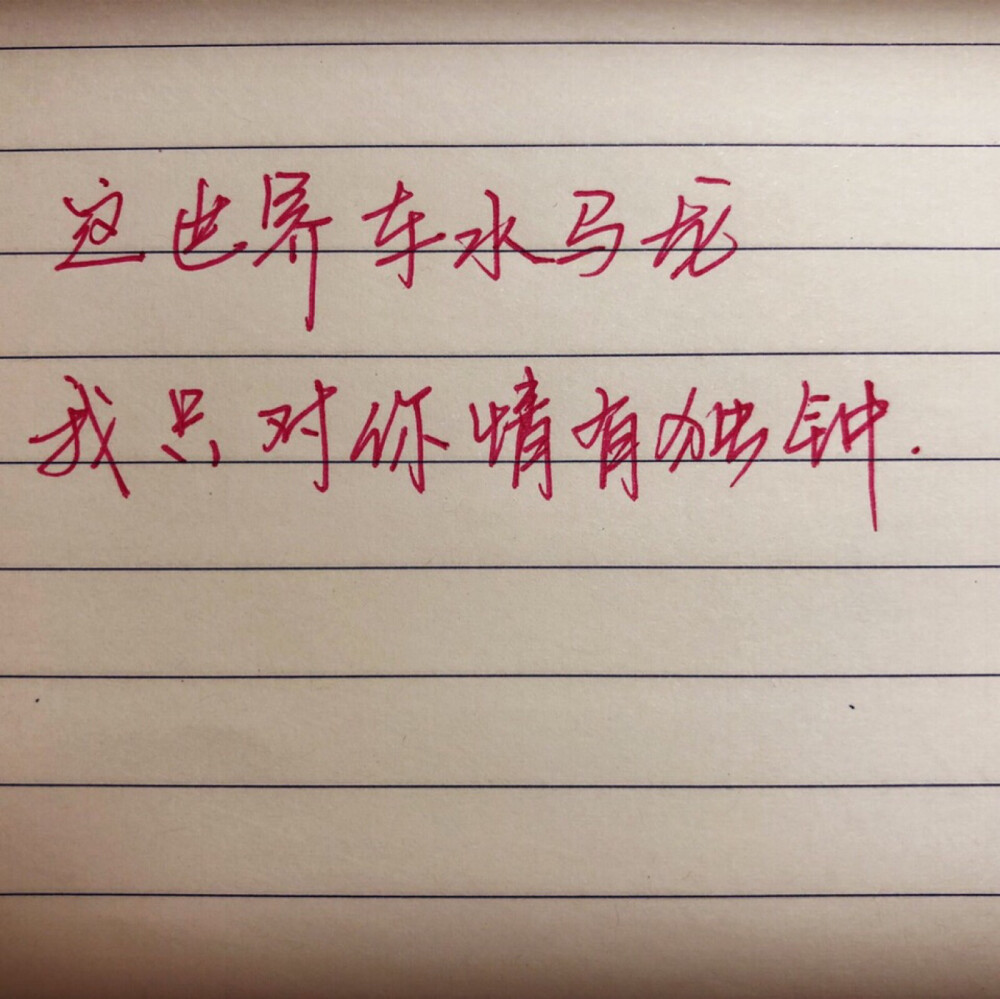 这世界车水马龙
我只对你情有独钟.